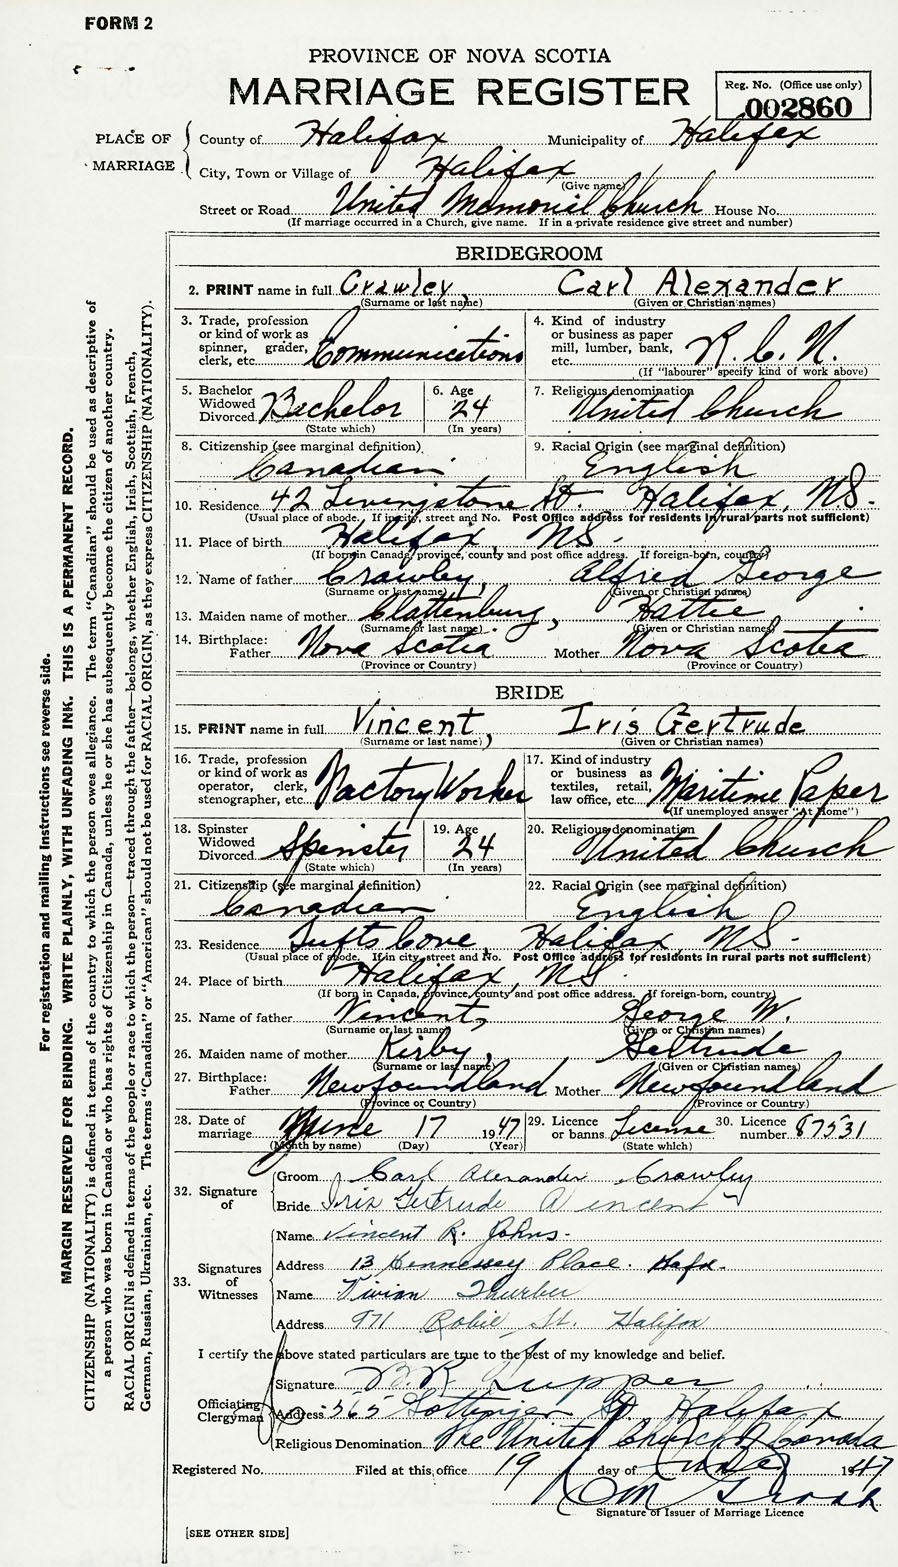 FORM 2
PROVINCE OF NOVA SCOTIA
MARRIAGE REGISTER
Reg. No. (Office use only)
002860
PLACE OF MARRIAGE
County of Halifax Municipality of Halifax
City, Town or Village of Halifax
(Give name)
Street or Road United Memorial Church House No.
(If marriage occurred in a Church, give name. If in a private residence give street and number)
BRIDEGROOM
2. PRINT name in full Crawley, Carl Alexander
(Surname or last name) (Given or Christian names)
3. Trade, profession or kind of work as spinner, grader, clerk, etc. Communications
4. Kind of industry or business as paper mill, lumber, bank, etc. R.C.N.
(If "labourer" specify kind of work above)
5. Bachelor Widowed Divorced Bachelor
(State which)
6. Age 24
(In years)
7. Religious denomination United Church
8. Citizenship (see marginal definition) Canadian
9. Racial Origin (see marginal definition) English
10. Residence 42 Livingstone St. Halifax, NS.
(Usual place of abode. If in city, street and No. Post Office address for residents in rural parts not sufficient)
11. Place of birth Halifax NS.
(If born in Canada, province, county and post office address. If foreign-born, country)
12. Name of father Crawley, Alfred George
(Surname or last name) (Given or Christian names)
13. Maiden name of mother Clattenburg, Hattie
(Surname or last name) (Given or Christian names)
14. Birthplace: Father Nova Scotia Mother Nova Scotia
(Province or Country) (Province or Country)
BRIDE
15. PRINT name in full Vincent, Iris Gertrude
(Surname or last name) (Given or Christian names)
16. Trade, profession or kind of work as operator, clerk, stenographer, etc. Factory Worker
17. Kind of industry or business as textiles, retail, law office, etc. Maritime Paper
(If unemployed answer "At Home")
18. Spinster Widowed Divorced Spinster
(State which)
19. Age 24
(In years)
20. Religious denomination United Church
21. Citizenship (see marginal definition) Canadian
22. Racial Origin (see marginal definition) English
23. Residence Tufts Cove, Halifax, NS.
(Usual place of abode. If in city, street and No. Post Office address for residents in rural parts not sufficient)
24. Place of birth Halifax, NS.
(If born in Canada, province, county and post office address. If foreign-born, country)
25. Name of father Vincent, George W.
(Surname or last name) (Given or Christian names)
26. Maiden name of mother Kirby, Gertrude
(Surname or last name) (Given or Christian names)
27. Birthplace: Father Newfoundland Mother Newfoundland
(Province or Country) (Province or Country)
28. Date of marriage June 17 1947
(Month by name) (Day) (Year)
29. Licence or banns License
(State which)
30. Licence number 87531
32. Signature of
Groom Carl Alexander Crawley
Bride Iris Gertrude Vincent
33. Signatures of Witnesses
Name Vincent R. Johns.
Address 13 Hennessey Place. Hafx.
Name Vivian Thurber
Address 971 Robie St. Halifax
I certify the above stated particulars are true to the best of my knowledge and belief.
Officiating Clergyman
Signature Tupper
Address 565 Gottingen St Halifax
Religious Denomination The United Church of Canada
Registered No. Filed at this office 19 day of June 1947
Signature of Issuer of Marriage Licence
[SEE OTHER SIDE]
For registration and mailing instructions see reverse side.
MARGIN RESERVED FOR BINDING. WRITE PLAINLY, WITH UNFADING INK. THIS IS A PERMANENT RECORD.
CITIZENSHIP (NATIONALITY) is defined in terms of the country to which the person owes allegiance. The term "Canadian" should be used as descriptive of
a person who was born in Canada or who has rights of Citizenship in Canada, unless he or she has subsequently become the citizen of another country.
RACIAL ORIGIN is defined in terms of the people or race to which the person—traced through the father—belongs, whether English, Irish, Scottish, French,
German, Russian, Ukrainian, etc. The terms "Canadian" or "American" should not be used for RACIAL ORIGIN, as they express CITIZENSHIP (NATIONALITY).